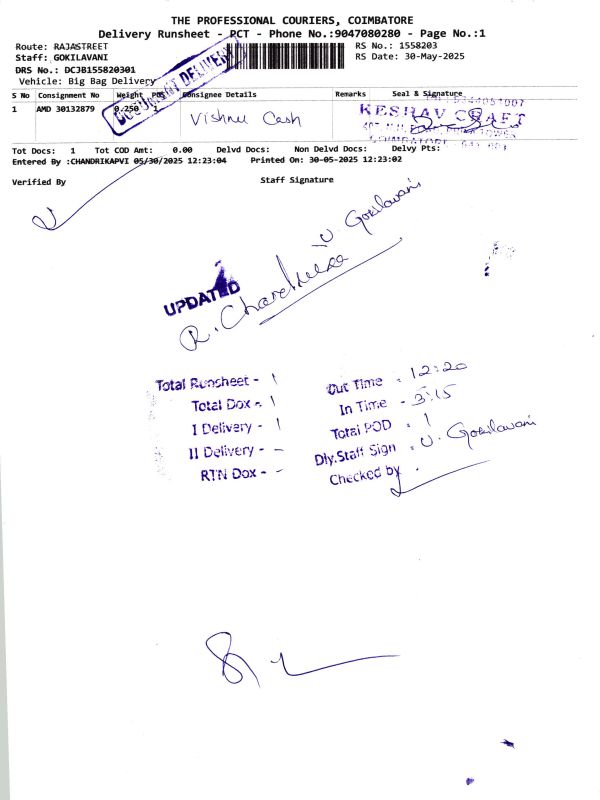 THE PROFESSIONAL COURIERS, COIMBATORE
Delivery Runsheet - PCT - Phone No.:9047080280 - Page No.:1
Route: RAJASTREET
RS No.: 1558203
Staff: GOKILAVANI
RS Date: 30-May-2025
DRS No.: DCJB155820301
Vehicle: Big Bag Delivery
DOCUMENT DELIVERY
S No Consignment No Weight PCS Consignee Details Remarks Seal & Signature
1 AMD 30132879 0.250 1 Vishnu Cash
KESHAV CRAFT
Tot Docs: 1 Tot COD Amt: 0.00 Delvd Docs: Non Delvd Docs: Delvy Pts:
Entered By :CHANDRIKAPVI 05/30/2025 12:23:04 Printed On: 30-05-2025 12:23:02
Verified By Staff Signature
U. Gokilavani
UPDATED
R. Chandrika
Total Runsheet - 1
Total Dox - 1
I Delivery - 1
II Delivery - -
RTN Dox - -
Out Time - 12:20
In Time - 3:15
Total POD - 1
Dly.Staff Sign - U. Gokilavani
Checked by -